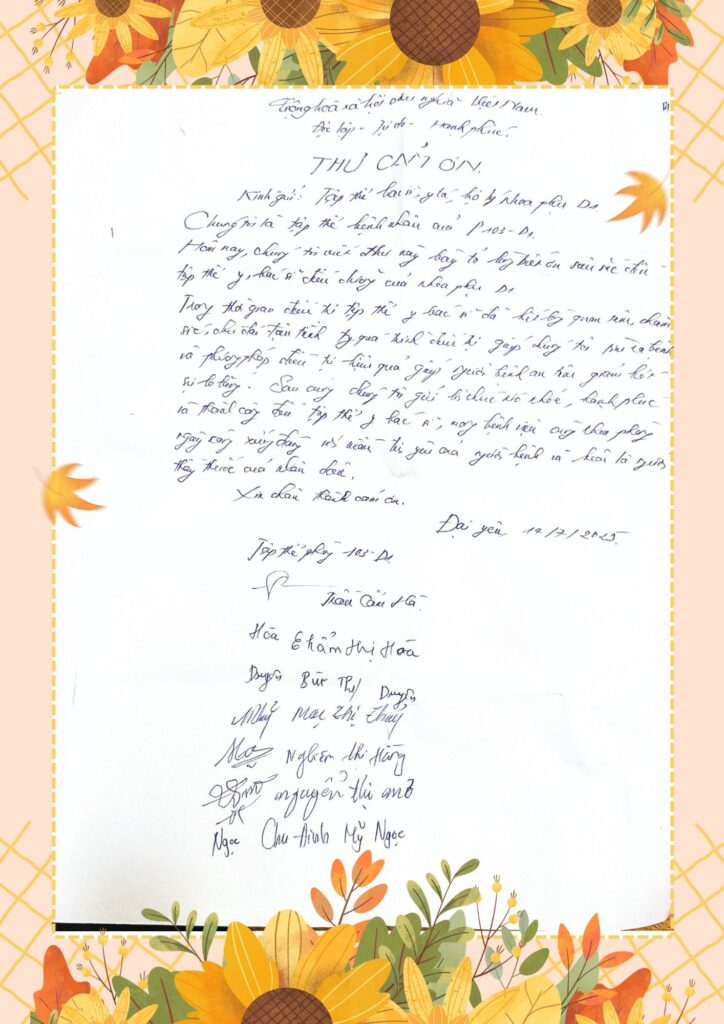 Cộng hoà xã hội chủ nghĩa Việt Nam.
Độc lập - Tự do - Hạnh phúc.
THƯ CẢM ƠN.
Kính gửi: Tập thể bác sĩ, y tá, hộ lý khoa phụ D1
Chúng tôi là tập thể bệnh nhân của P 103-D1.
Hôm nay, chúng tôi viết thư này bày tỏ lòng biết ơn sâu sắc đến
tập thể y, bác sĩ điều dưỡng của khoa phụ D1
Trong thời gian điều trị tập thể y bác sĩ đã hết lòng quan tâm, chăm
sóc, chu đáo tận tình quá trình điều trị giúp chúng tôi bệnh
và phương pháp điều trị hiệu quả giúp người bệnh an tâm giảm bớt
sự lo lắng. Sau cùng chúng tôi gửi lời chúc sức khỏe, hạnh phúc
và thành công đến tập thể y bác sĩ, mong bệnh viện cùng khoa phòng
ngày càng xứng đáng với niềm tin yêu của người bệnh và luôn là người
thầy thuốc của nhân dân.
Xin chân thành cảm ơn.
Đại yên 14/7/2025.
Tập thể phòng 103-D1.
Trần Cẩm Hà
Hòa Khẩm Thị Hòa
Duyên Bùi Thị Duyên
Thuỷ Mạc Thị Thuỷ
Nghiêm Thị Hằng
nguyễn thị mơ
Ngọc Chu Ainh Mỹ Ngọc